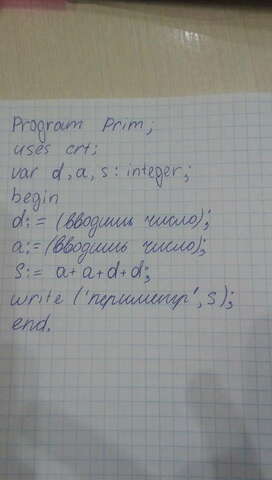 Program Prim;
uses crt;
var d, a, s : integer;
begin
d: = (вводишь число);
a: = (вводишь число);
S: = a + a + d + d;
write ('периметр', s);
end.